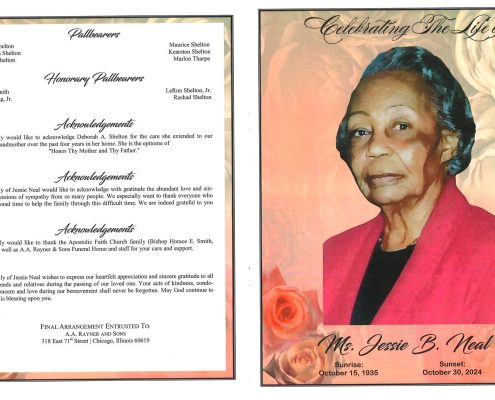 Pallbearers
Shelton
Maurice Shelton
Shelton
Kearston Shelton
Marlon Tharpe
Honorary Pallbearers
LeRon Shelton, Jr.
Jr.
Rashad Shelton
Acknowledgements
would like to acknowledge Deborah A. Shelton for the care she extended to our
over the past four years in her home. She is the epitome of
"Honor Thy Mother and Thy Father."
Acknowledgements
of Jessie Neal would like to acknowledge with gratitude the abundant love and sin-
of sympathy from so many people. We especially want to thank everyone who
time to help the family through this difficult time. We are indeed grateful to you
Acknowledgements
would like to thank the Apostolic Faith Church family (Bishop Horace E. Smith,
well as A.A. Rayner & Sons Funeral Home and staff for your care and support.
of Jessie Neal wishes to express our heartfelt appreciation and sincere gratitude to all
and relatives during the passing of our loved one. Your acts of kindness, condo-
and love during our bereavement shall never be forgotten. May God continue to
blessing upon you.
FINAL ARRANGEMENT ENTRUSTED TO:
A.A. RAYNER AND SONS
318 East 71st Street | Chicago, Illinois 60619
Celebrating The Life
Ms. Jessie B. Neal
Sunrise:
October 15, 1935
Sunset:
October 30, 2024